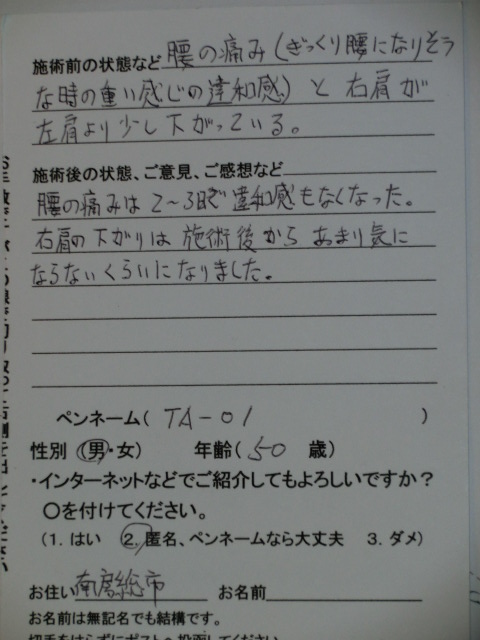 施術前の状態など 腰の痛み(ぎっくり腰になりそう
な時の重い感じの違和感)と右肩が
左肩より少し下がっている。
施術後の状態、ご意見、ご感想など
腰の痛みは2~3日で違和感もなくなった。
右肩の下がりは施術後からあまり気に
ならないくらいになりました。
ペンネーム( TA-01 )
性別(男・女) 年齢(50 歳)
・インターネットなどでご紹介してもよろしいですか?
〇を付けてください。
(1. はい 2. 匿名、ペンネームなら大丈夫 3. ダメ)
お住い 南房総市 お名前
お名前は無記名でも結構です。
切手をはらずにポストへ投函してください